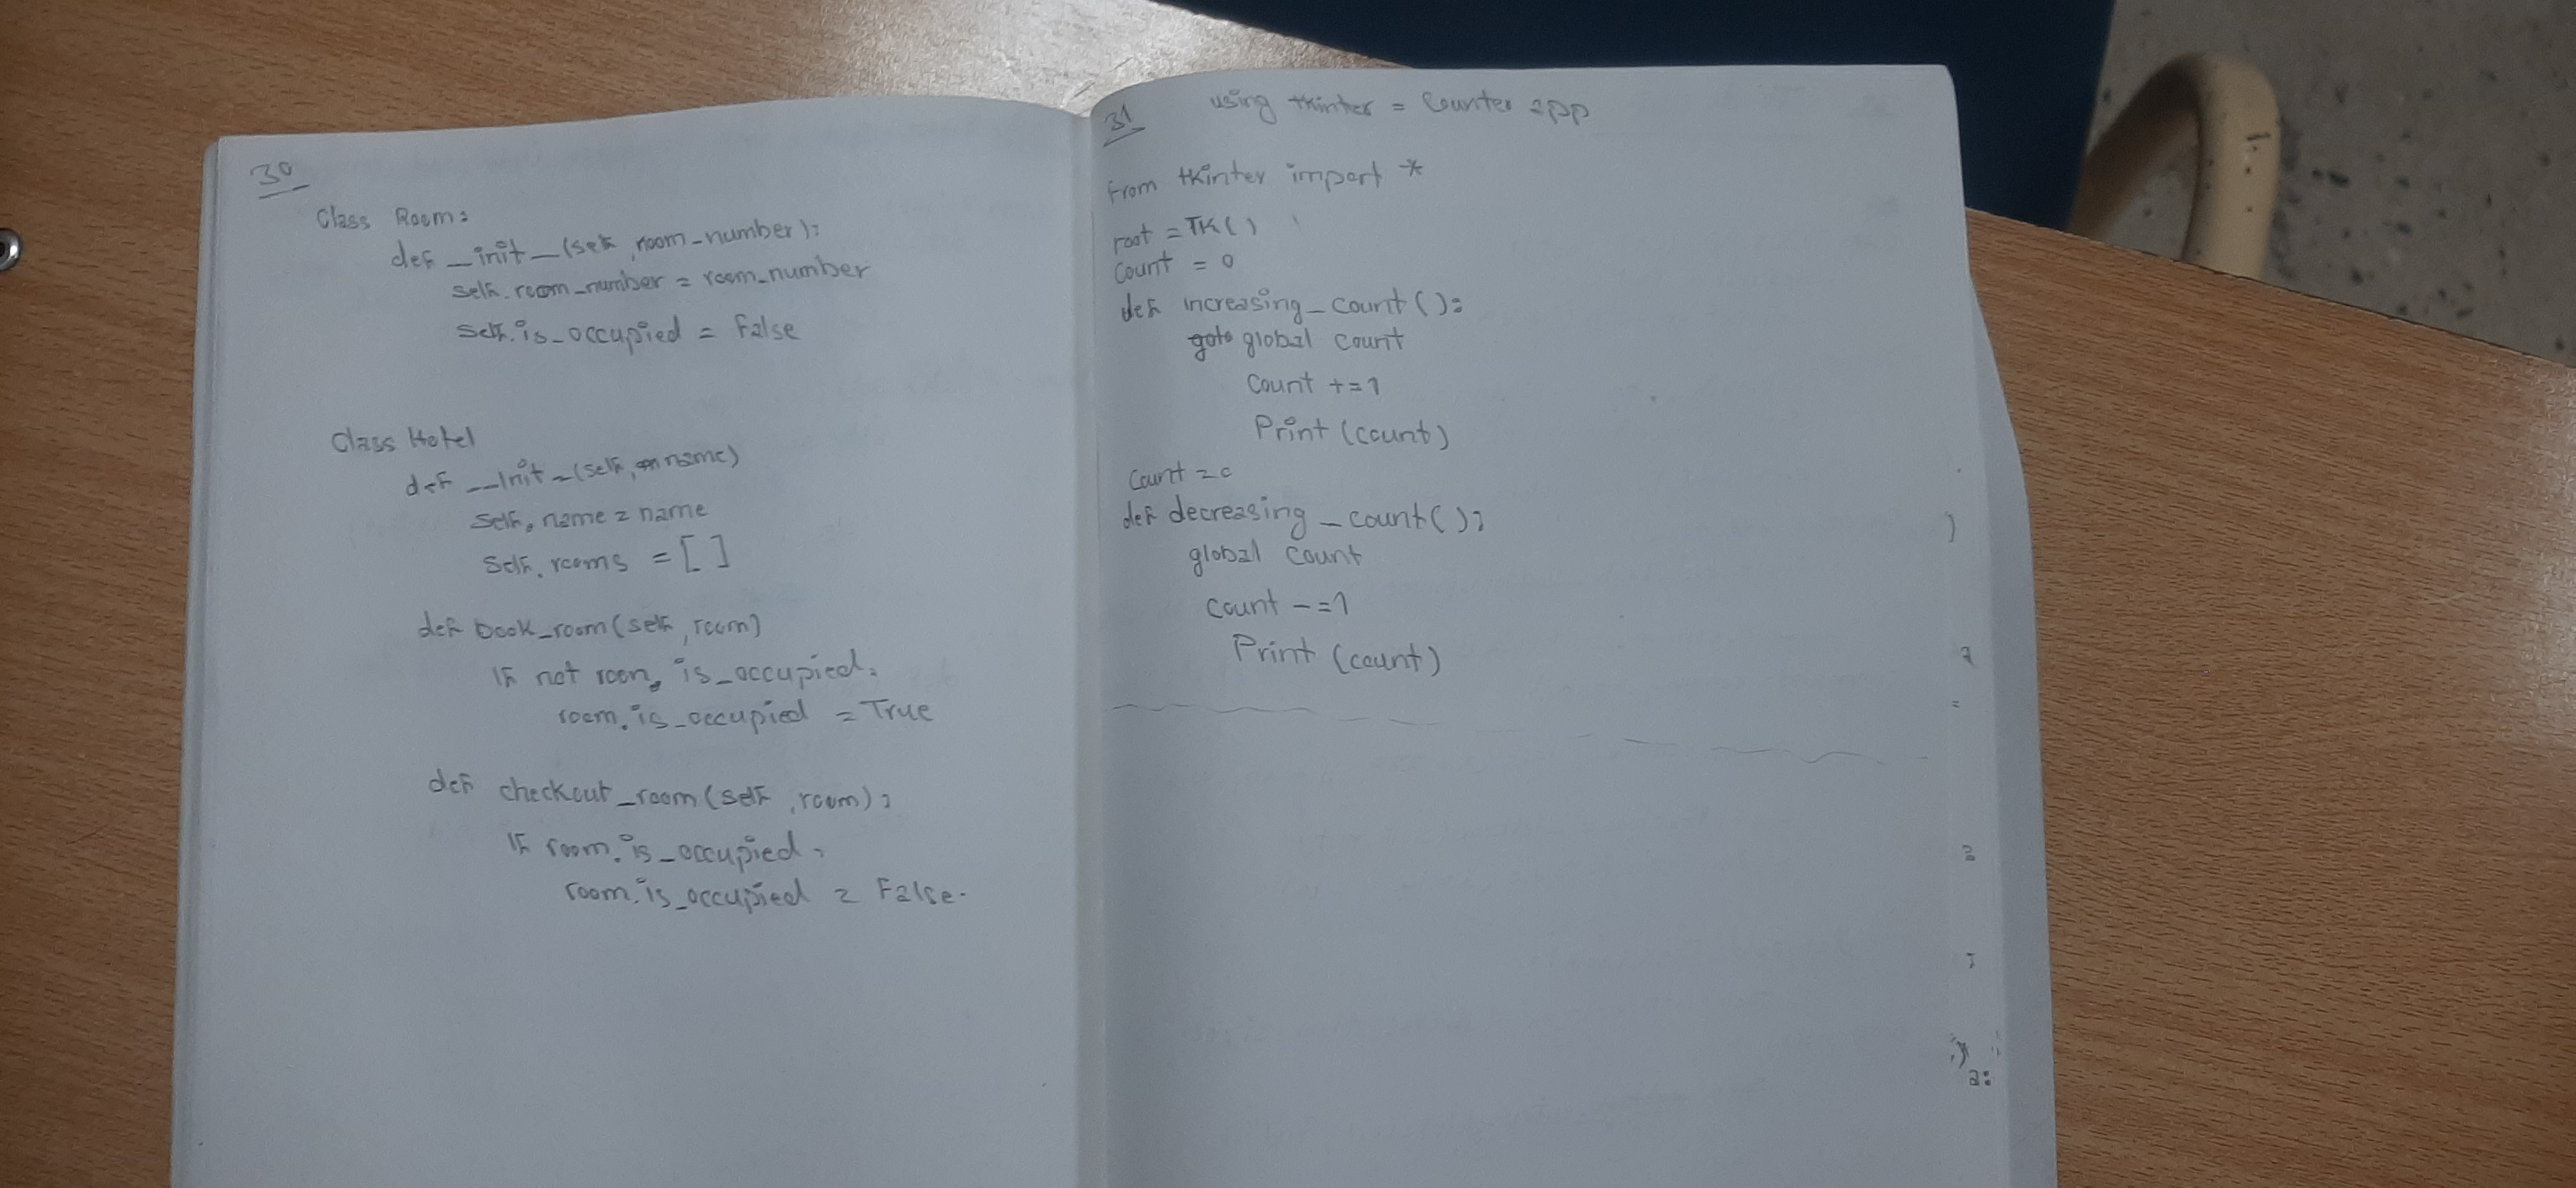 30
Class Room:
def __init__(self, room_number):
self.room_number = room_number
self.is_occupied = False
Class Hotel
def __init__(self, name)
self.name = name
self.rooms = []
def book_room(self, room)
If not room.is_occupied:
room.is_occupied = True
def checkout_room(self, room):
If room.is_occupied:
room.is_occupied = False.
31
using tkinter = Counter app
from tkinter import *
root = TK()
Count = 0
def increasing_count():
global count
Count +=1
Print (count)
Count = 0
def decreasing_count():
global count
Count -=1
Print (count)